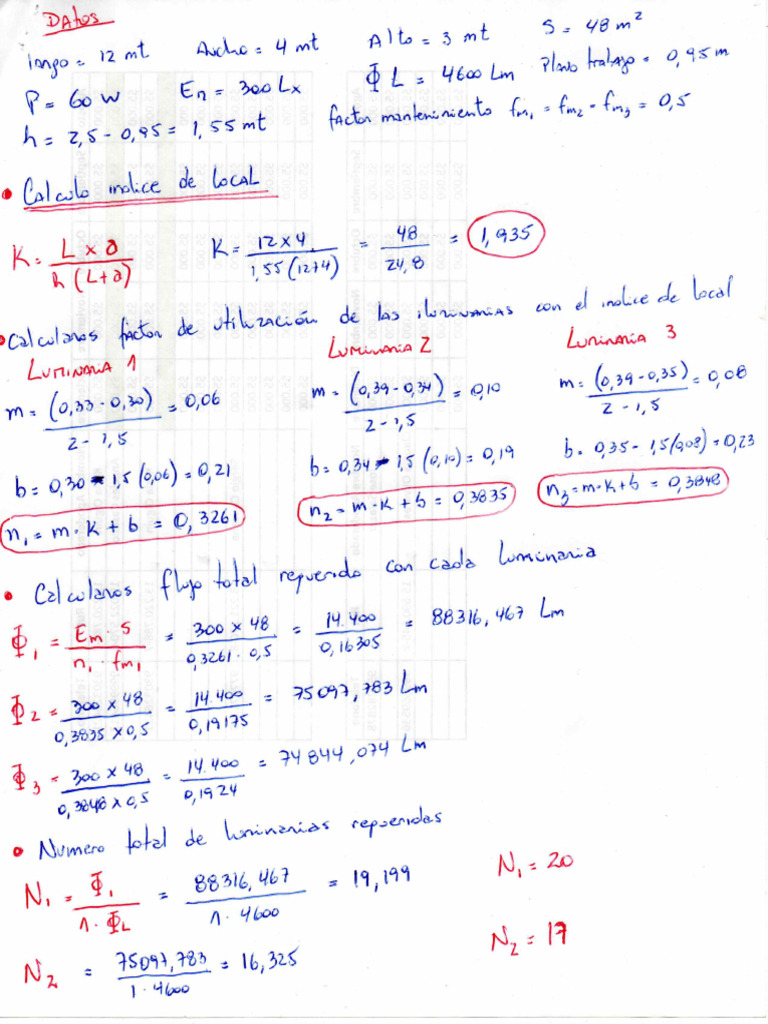 Datos
largo = 12 mt   Ancho = 4 mt   Alto = 3 mt   S = 48 m²
P = 60 W   En = 300 Lx   Φ L = 4600 Lm   Plano trabajo = 0,95 m
h = 2,5 - 0,95 = 1,55 mt   factor mantenimiento fm₁ = fm₂ - fm₃ = 0,5
• Calculo indice de local
K = L x a / h (L+a)   K = 12 x 4 / 1,55 (12+4) = 48 / 24,8 = 1,935
• Calculamos factor de utilización de las iluminarias con el indice de local
Luminaria 1   Luminaria 2   Luminaria 3
m = (0,33 - 0,30) / 2 - 1,5 = 0,06   m = (0,39 - 0,34) / 2 - 1,5 = 0,10   m = (0,39 - 0,35) / 2 - 1,5 = 0,08
b = 0,30 - 1,5 (0,06) = 0,21   b = 0,34 - 1,5 (0,10) = 0,19   b = 0,35 - 1,5 (0,08) = 0,23
n₁ = m · K + b = 0,3261   n₂ = m · K + b = 0,3835   n₃ = m · K + b = 0,3848
• Calculamos flujo total requerido con cada luminaria
Φ₁ = Em · S / n₁ · fm₁ = 300 x 48 / 0,3261 · 0,5 = 14.400 / 0,16305 = 88316,467 Lm
Φ₂ = 300 x 48 / 0,3835 x 0,5 = 14.400 / 0,19175 = 75097,783 Lm
Φ₃ = 300 x 48 / 0,3848 x 0,5 = 14.400 / 0,1924 = 74844,074 Lm
• Numero total de luminarias requeridas
N₁ = Φ₁ / 1 · ΦL = 88316,467 / 1 · 4600 = 19,199   N₁ = 20
N₂ = 75097,783 / 1 · 4600 = 16,325   N₂ = 17